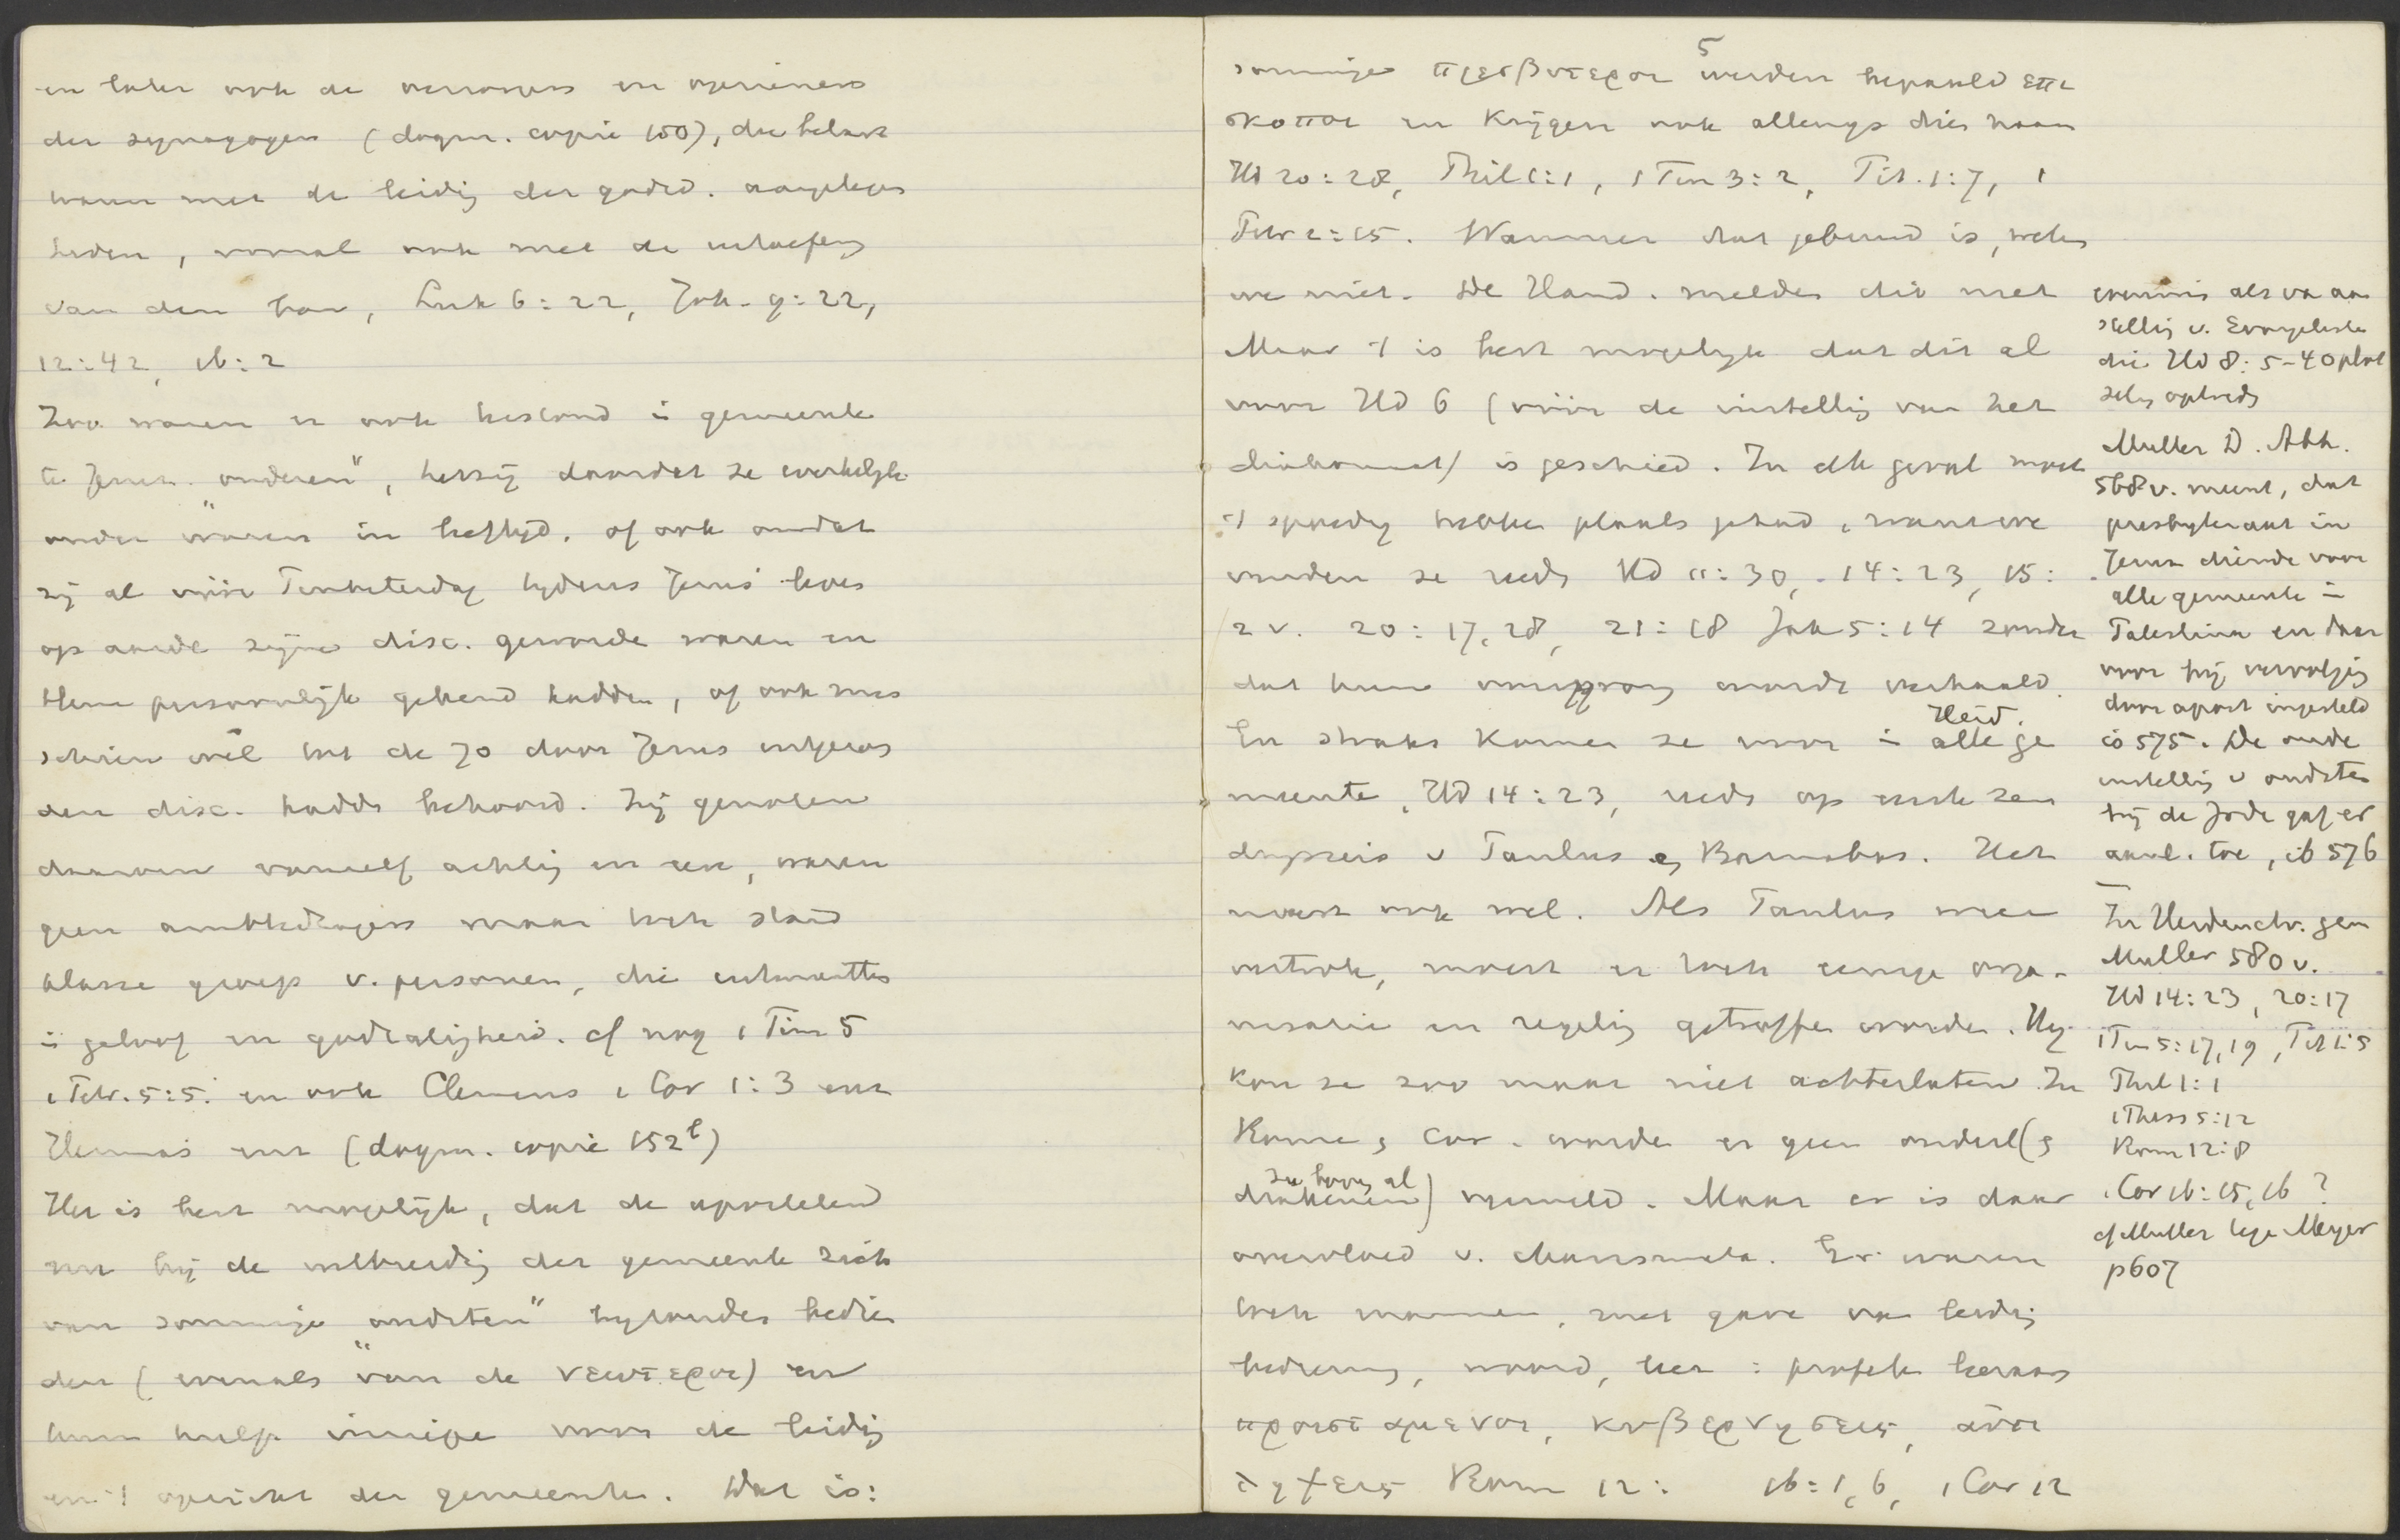 en later ook de verzorgers en opzieners
der synagogen (dogm. copie 150), die belast
waren met de leidig der godsd. aangelegen
heden, vooral ook met de uitoefeng
van den ban, Luk 6:22, Joh. 9:22,
12:42, 16:2
Zoo waren er ook bestond i gemeente
te Jeruz. "ouderen", hetzij doordat ze werkelyk
ouder waren in leeftyd, of ook omdat
zij al vóór Pinksterdag tydens Jezus' leven
op aarde zijne disc. geworde waren en
Hem persoonlijk gekend hadden, of ook mis
schien wel tot de 70 door Jezus uitgezon
den disc. hadde behoord. Zij genoten
daarom vanzelf achtig en eer, waren
geen ambtsdragers maar toch stand
klasse groep v. personen, die uitmuntten
i geloof en godzaligheid. cf nog 1 Tim 5
1 Petr. 5:5. en ook Clemens 1 Cor 1:3 enz
Hermas enz (dogm. copie 152b)
Het is best mogelijk, dat de apostelen
nu bij de uitbreidig der gemeente zich
van sommige "oudsten" byzonder bedien
den (evenals van de νεωτεροι) en
hun hulp inriepe voor de leidig
en 't opzicht der gemeente. Dat is:
5
sommige πρεσβυτεροι werden bepaald επι
σκοποι en krijgen ook allengs dien naam
Hd 20:28, Phil 1:1, 1 Tim 3:2, Tit. 1:7, 1
Petr 2:25. Wanneer dat gebeurd is, weten
we niet. De Hand. melden dit niet
Maar 't is best mogelyk dat dit al
voor Hd 6 (vóór de instellig van het
diakonaat) is geschied. In elk geval moet
't spoedig hebben plaats gehad, want we
vinden ze reeds Hd 11:30, 14:23, 15:
2 v. 20:17, 28, 21:18 Jak 5:14 zonder
dat hun oorsprong wordt verhaald.
Heid.
En straks komen ze voor i alle ge
meente, Hd 14:23, reeds op eerste zen
dingsreis v Paulus en Barnabas. Het
moest ook wel. Als Paulus weer
vertrok, moest er toch eenige orga-
nisatie en regelig getroffe worden. Hij
kon ze zoo maar niet achterlaten. In
Rome en Cor. worde er geen ouderl (en
zie boven al
diakenen) vermeld. Maar er is daar
overvloed v. charismata. Er waren
toch mannen, met gave van leidig
bediening, woord, leer: profeten leeraars
προισταμενοι, κυβερνησεις, αντι
ληψεις Rom 12: 16:1, 6, 1 Cor 12
evenmin als van aan
stellig v. Evangeliste
die Hd 8:5-40 plots
selig optreedt
Muller D. Abh.
568 v. meent, dat
presbyteraat in
Jeruz diende voor
alle gemeente i
Palestina en daar
voor bij vervolgig
door apost ingesteld
is 575. De oude
instellig v oudste
bij de Jode gaf er
aanl. toe, ib 576
In Heidenchr. gem
Muller 580 v.
Hd 14:23, 20:17
1 Tim 5:17, 19, Tit 1:5
Phil 1:1
1 Thess 5:12
Rom 12:8
1 Cor 16:15, 16?
cf Muller tege Meyer
p 607